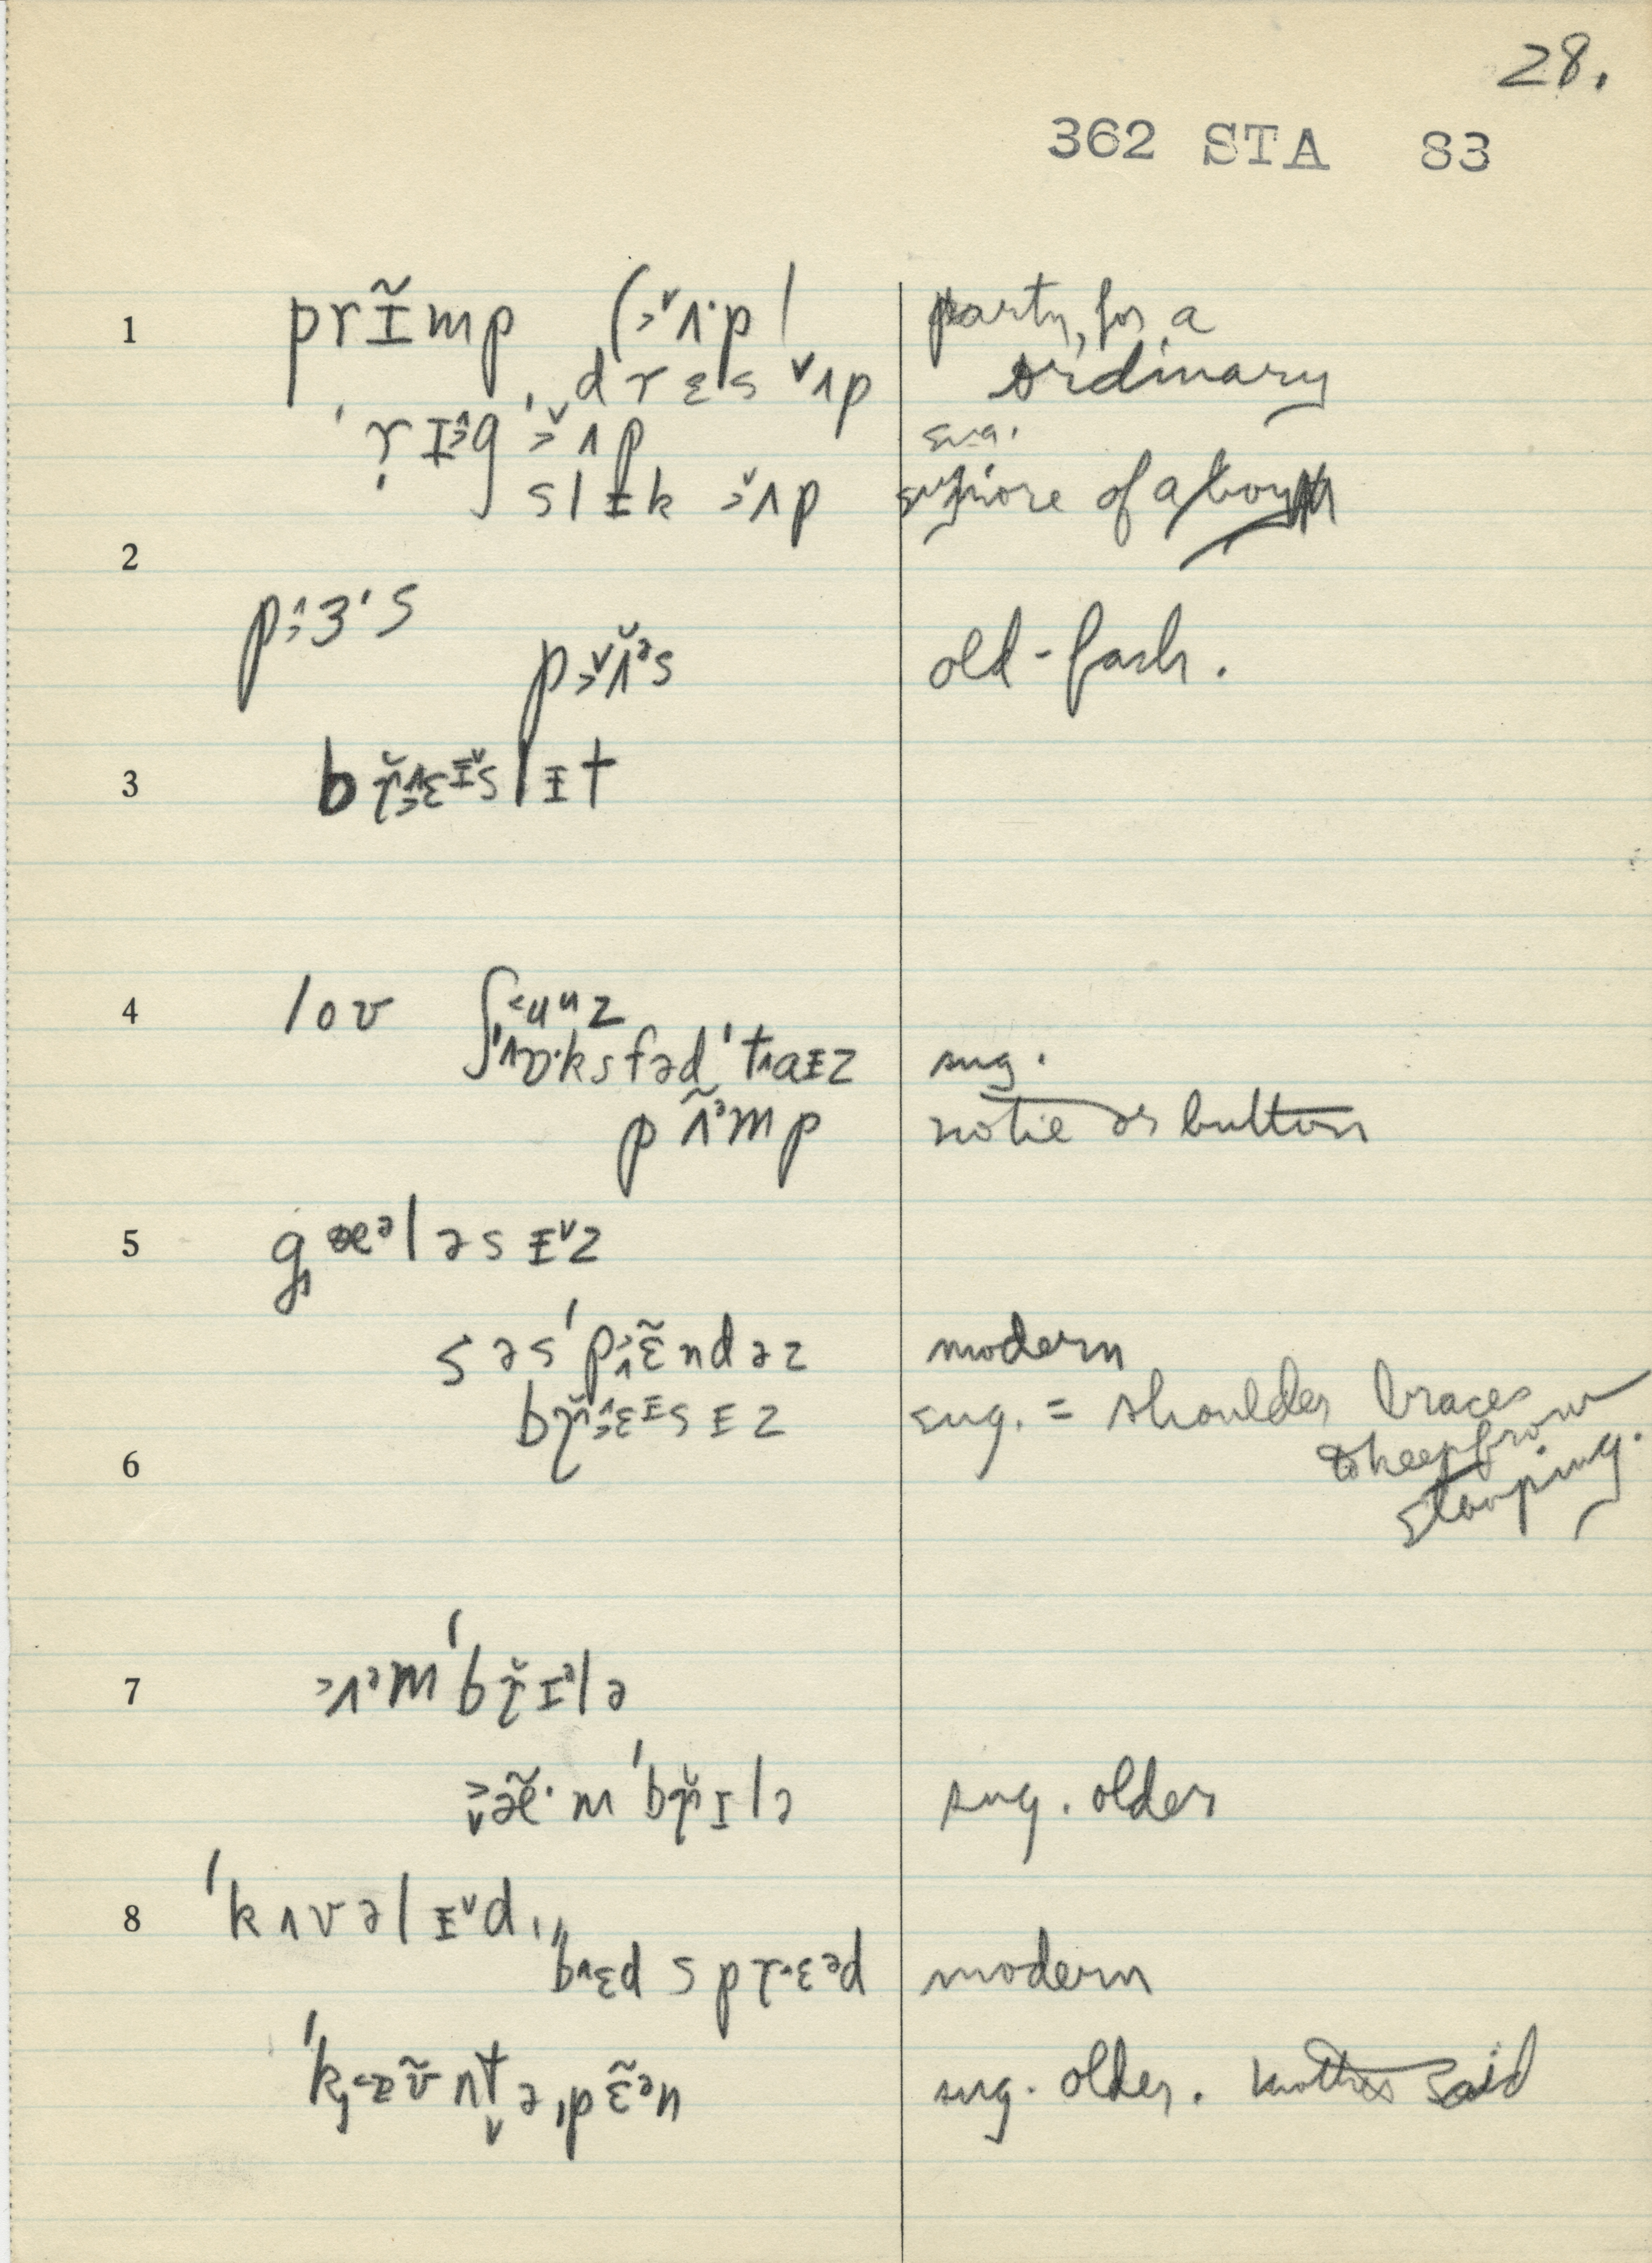 28.
362 STA 83
1 prɪ̃mp (ʌ·p) party, for a
ˌdrɛs ʌp ordinary
ˈrɪəg ˈʌp sug.
slɪk ʌp more of a boy
2
pɜˑs
pʌ̆ᵊs old-fash.
3 brɛɪslɪt
4 loʊ ʃuᵘz
ˈɒ·ksfədˈtaɪz sug.
pʌ̃ᵊmp no tie or button
5 gæᵊləsɪz
səsˈpɛ̃ndəz modern
brɛɪsɪz sug. = shoulder braces
6 to keep from
stooping.
7 ʌᵊmˈbrɪᵊlə
æ̃·mˈbrɪlə sug. older
8 ˈkʌvəlɪd,
ˈbɛdsprɛᵊd modern
ˈkæʊ̃ntəˌpɛ̃ᵊn sug. older. mother said